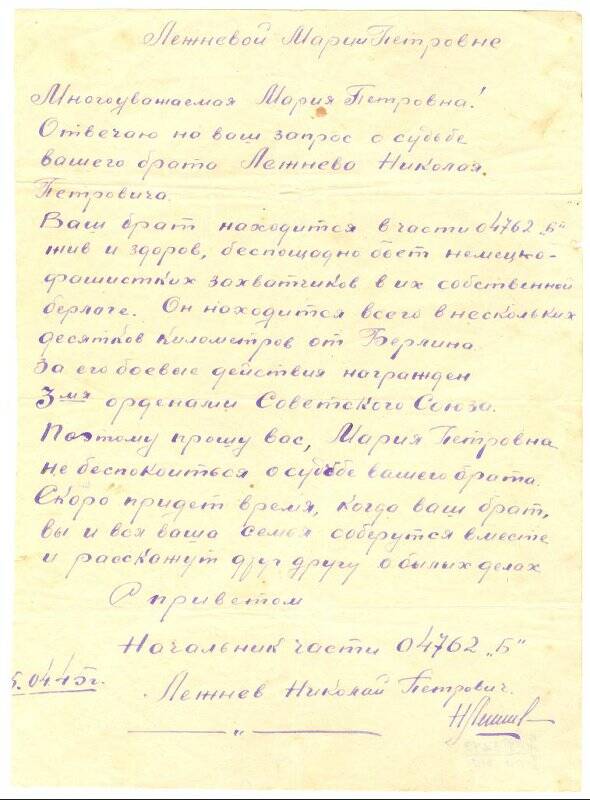 Лежневой Марии Петровне
Многоуважаемая Мария Петровна!
Отвечаю на ваш запрос о судьбе
вашего брата Лежнева Николая
Петровича.
Ваш брат находится в части 04762 „Б"
жив и здоров, беспощадно бьет немецко-
фашистких захватчиков в их собственной
берлаге. Он находится всего в нескольких
десятков километров от Берлина.
За его боевые действия награжден
3мя орденами Советского Союза.
Поэтому прошу вас, Мария Петровна
не беспокоиться о судьбе вашего брата.
Скоро придет время, когда ваш брат,
вы и вся ваша семья соберутся вместе
и расскажут друг другу о былых делах
С приветом
Начальник части 04762 „Б"
5.04.45г.
Лежнев Николай Петрович.